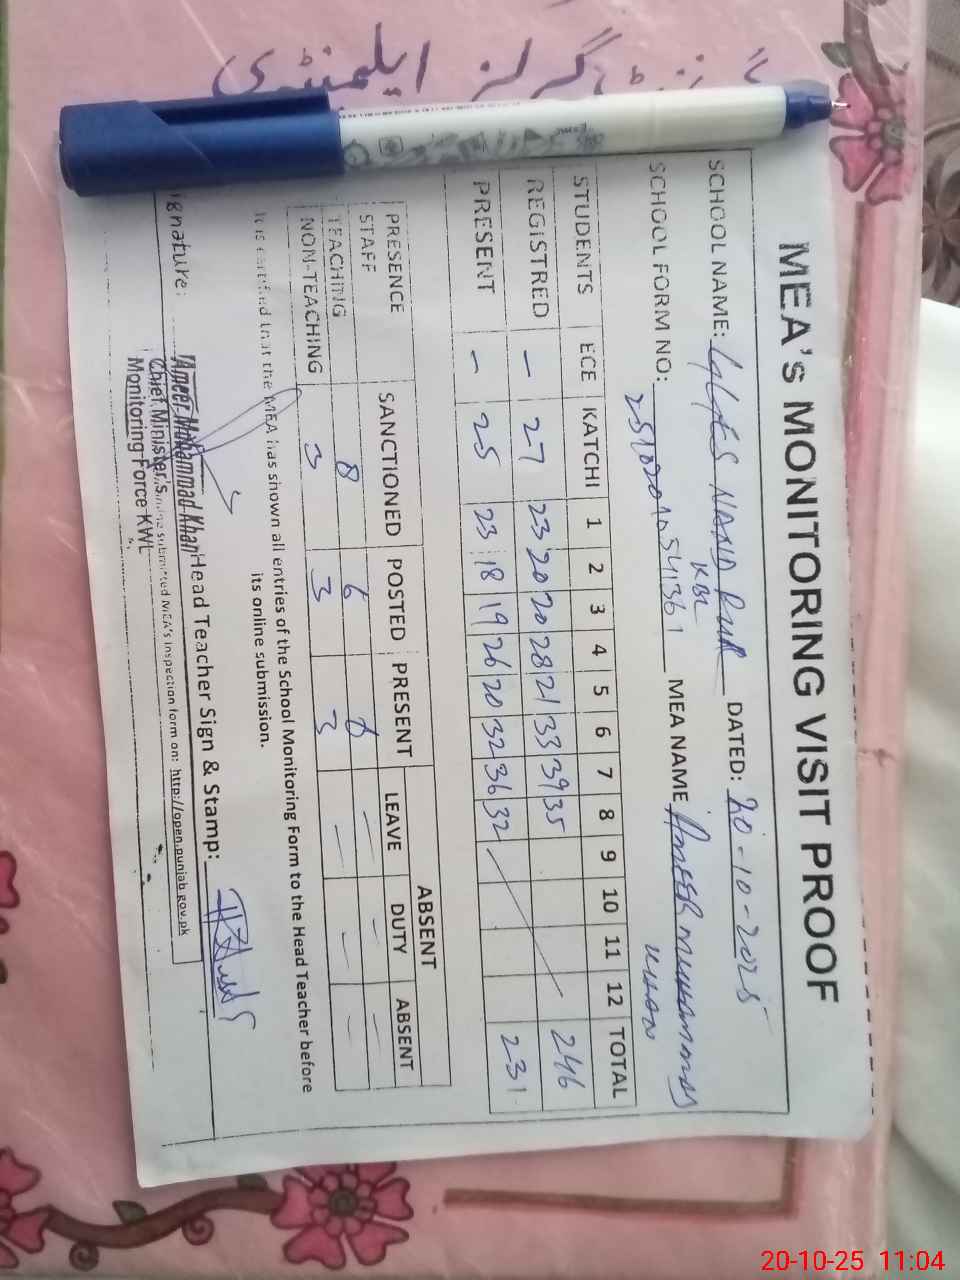 گرلز ایلیمنٹری
MEA's MONITORING VISIT PROOF
SCHOOL NAME: GGES NAND PUR KBL DATED: 20-10-2025
SCHOOL FORM NO: MEA NAME AMEER MUHAMMAD KHAN
STUDENTS ECE KATCHI 1 2 3 4 5 6 7 8 9 10 11 12 TOTAL
REGISTRED - 27 23 20 20 28 21 33 39 35 246
PRESENT - 25 23 18 19 26 20 32 36 32 231
ABSENT
PRESENCE SANCTIONED POSTED PRESENT LEAVE DUTY ABSENT
STAFF
TEACHING 8 6 6 - - -
NON-TEACHING 3 3 3 - - -
It is certified that the MEA has shown all entries of the School Monitoring Form to the Head Teacher before
its online submission.
ignature: Head Teacher Sign & Stamp:
Ameer Mohammad Khan
Chief Minister's
Monitoring Force KWL
online submitted MEA's inspection form on: http://open.punjab.gov.pk
20-10-25 11:04